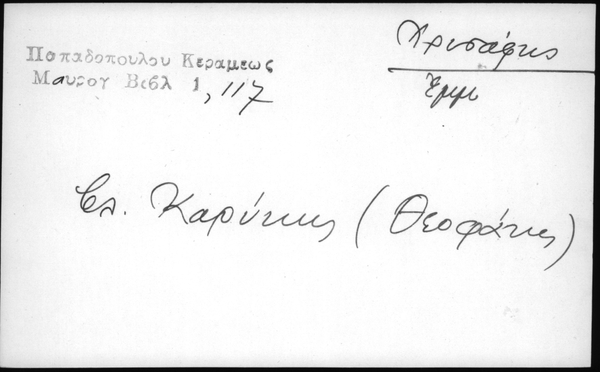 Παπαδοπουλου Κεραμεως
Μαυρογ Βιβλ 1, 117
Χρυσάφης
Βλ. Καρύκης (Θεοφάνης)